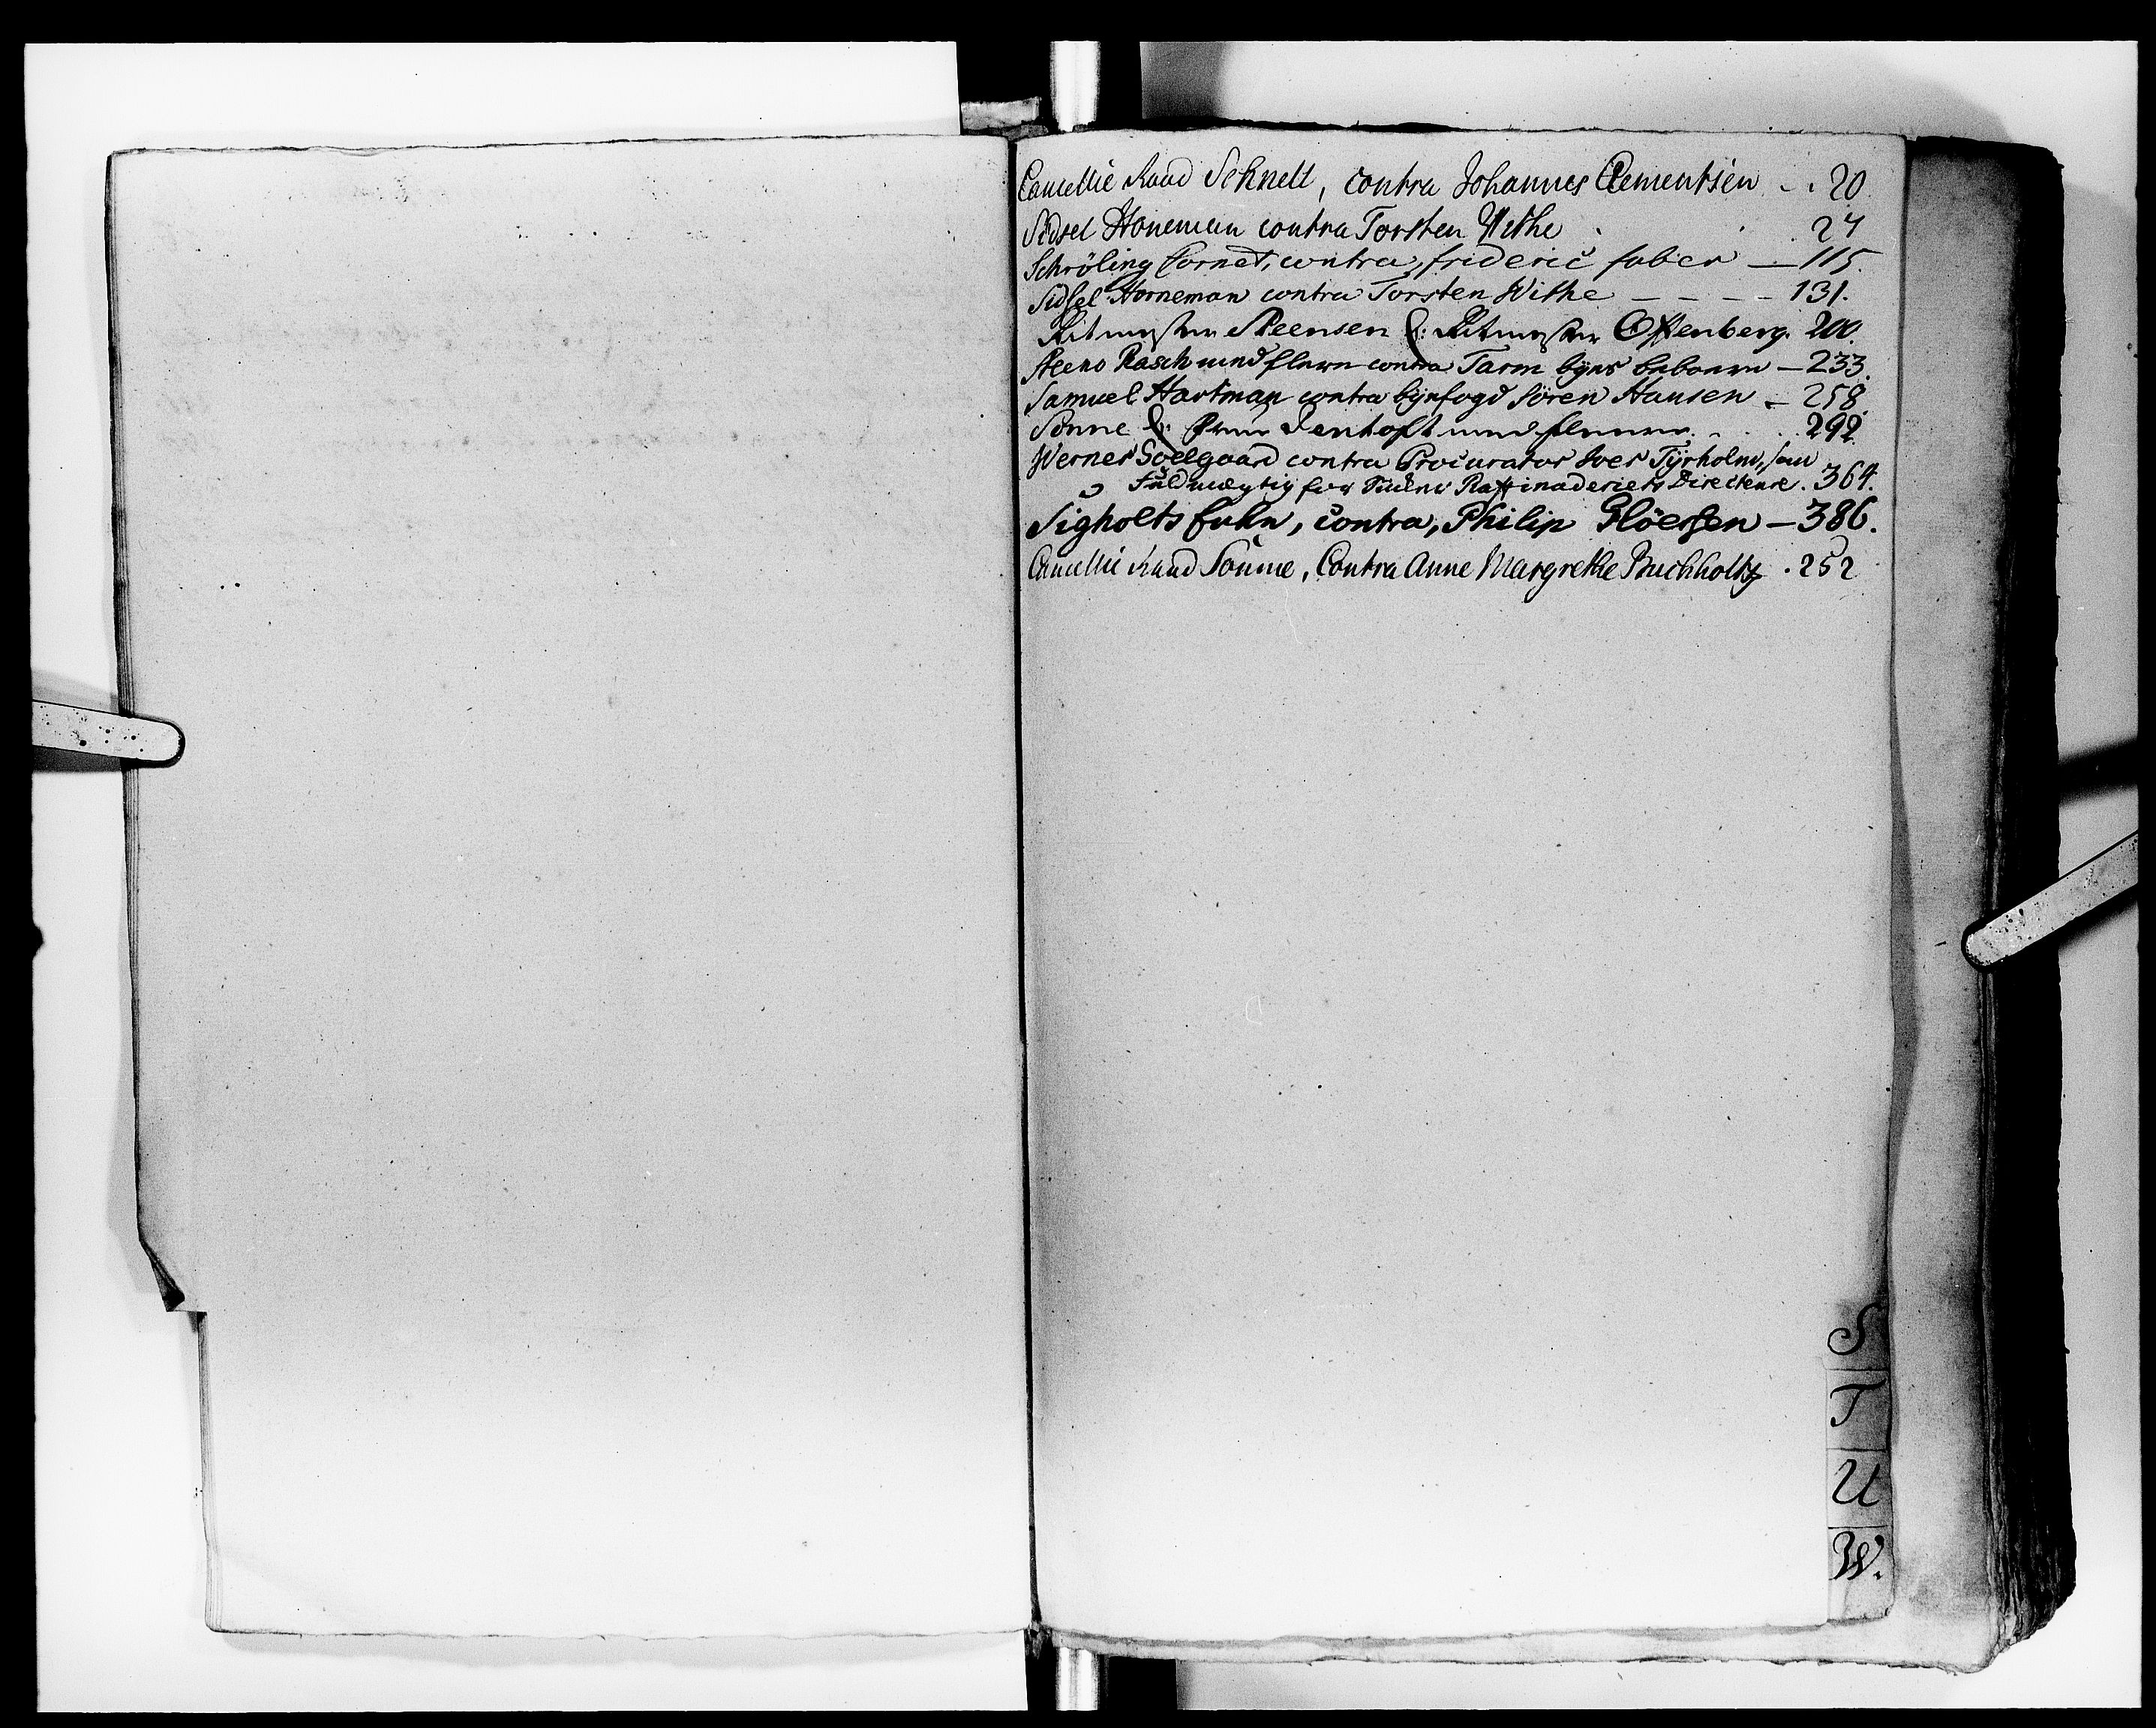 Cancellie Raad Schnell, contra Johannes Clementsen - . 20
Sidsel Honeman contra Torsten Withe . . . 27
Schröling Cornet, contra, frideric faber — 115.
Sidsel Horneman contra Torsten Withe — — — — 131.
Ritmester Steensen C: Ritmester Offenberg. 200.
Steno Rasch med flere contra Tarm byes beboere — 233.
Samuel Hartman contra byefogd Søren Hansen — 258.
Sonne C: Gentofte med flere . . . 292
Werner Soelgaard contra Procurator Iver Tyrholm, som
Fuldmægtig for Raffinaderiets Directeure. 364.
Sigholts contra, Philip Flöersen — 386.
Cancellie Raad Sonne, Contra Anne Margrethe Buchholtz . 252
S
T
U
W.